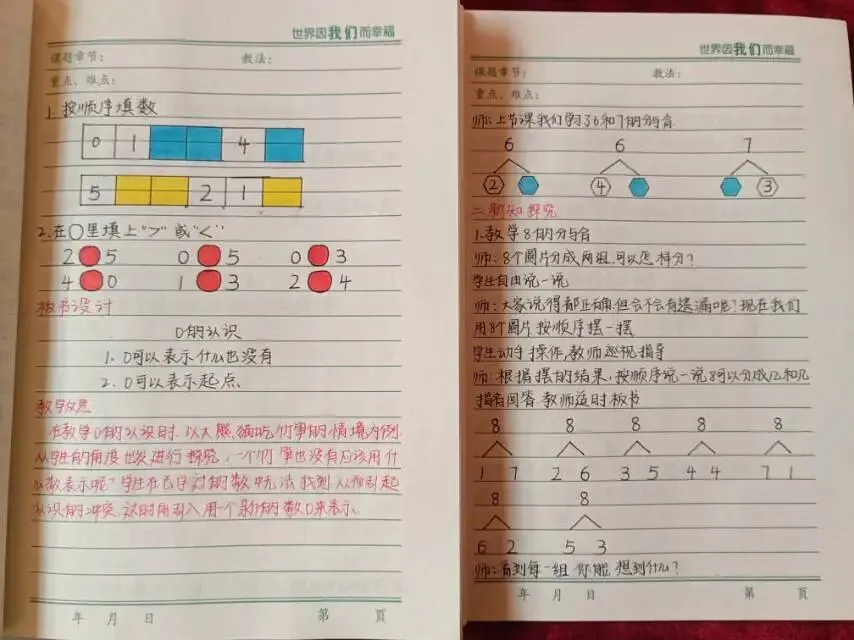 世界因我们而幸福
课题章节: 教法:
重点、难点:
1. 按顺序填数
0 1 4
5 2 1
2.在○里填上">"或"<"
2 5 0 5 0 3
4 0 1 3 2 4
板书设计
0的认识
1. 0可以表示什么也没有
2. 0可以表示起点
教学反思
在教学0的认识时.以大熊猫吃竹笋的情境为例
从学生的角度出发进行探究,一个竹笋也没有应该用什
么数表示呢"学生在已学过的数中无法找到从而引起
认识的冲突.这时再引入用一个新的数0来表示.
年 月 日 第 页
世界因我们而幸福
课题章节: 教法:
重点、难点:
师:上节课我们学习了6和7的分与合.
6 6 7
2 4 3
二.新知探究
1.教学8的分与合
师:8个圆片分成两组.可以怎样分?
学生自由说一说
师:大家说得都正确.但会不会有遗漏呢?现在我们
用8个圆片按顺序摆一摆
学生动手操作,教师巡视指导
师:根据摆的结果,按顺序说一说8可以分成几和几
指名回答.教师适时板书
8 8 8 8 8
1 7 2 6 3 5 4 4 7 1
8 8
6 2 5 3
师:看到每一组你能想到什么?
年 月 日 第 页